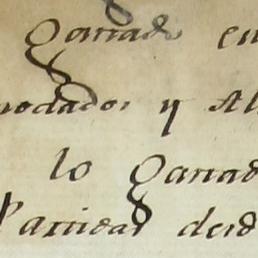 Ganad en
modados y Al
lo Ganad
Partidas desd